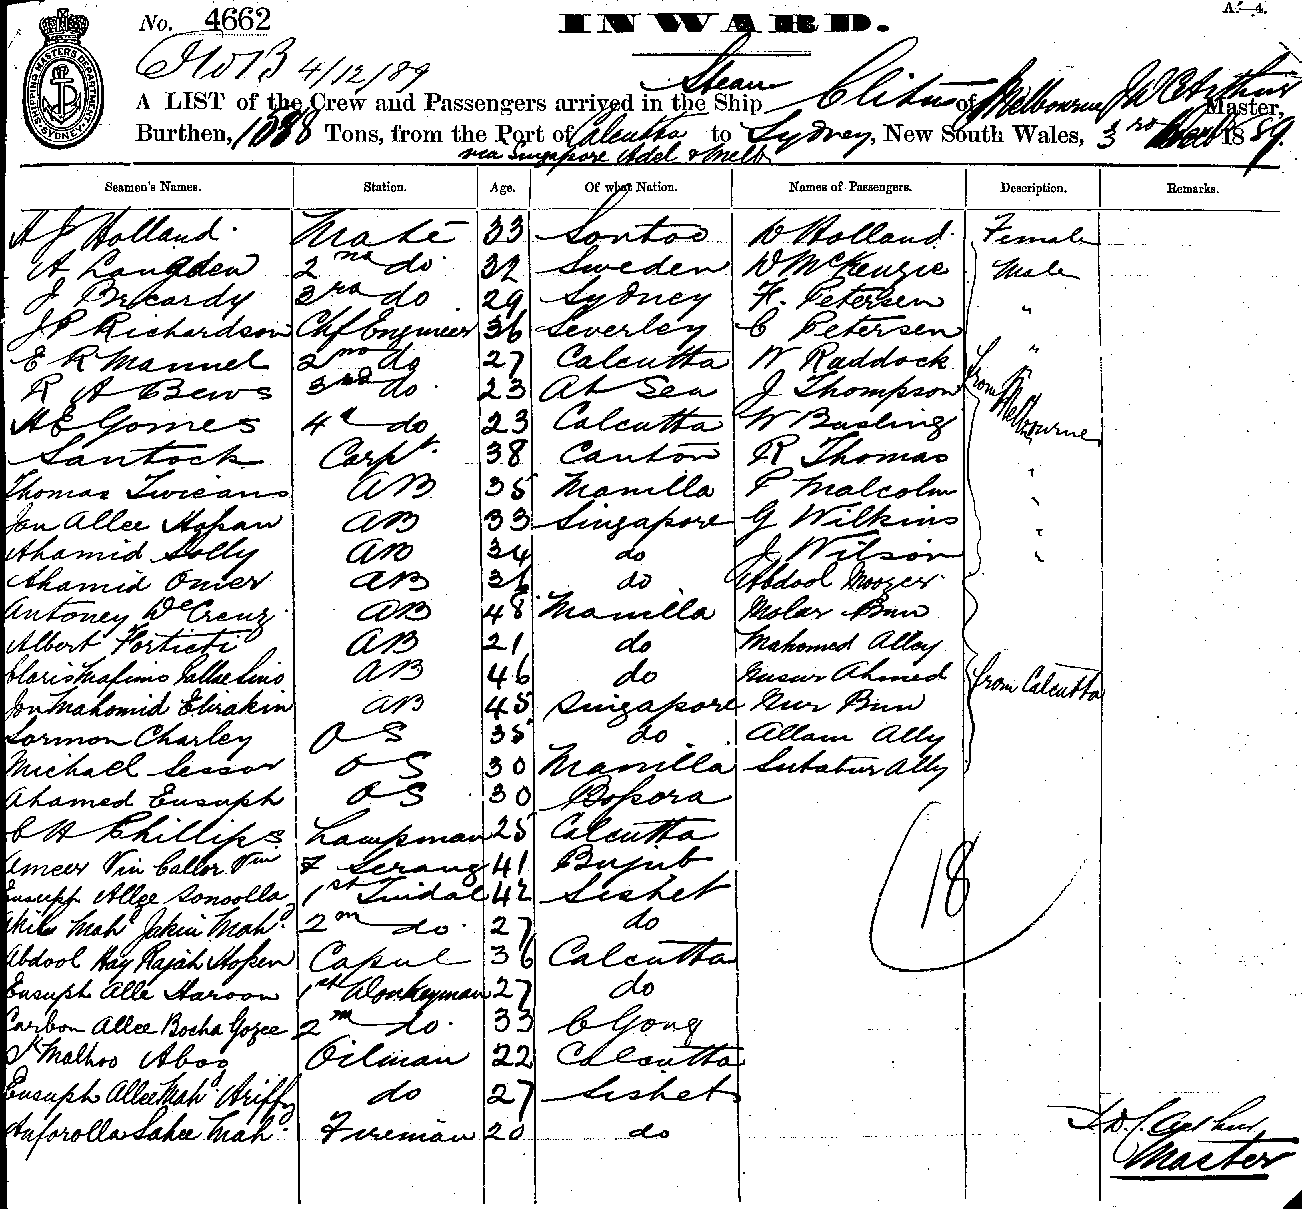 No. 4662
INWARD.
A.—4.
SHIPPING MASTERS DEPARTMENT SYDNEY
4/12/89
Steam
A LIST of the Crew and Passengers arrived in the Ship Clitus of Melbourne J W C Arthur Master,
Burthen, 1088 Tons, from the Port of Calcutta to Sydney, New South Wales, 3rd Decr 1889.
via Singapore Adel & Melb
Seamen's Names. Station. Age. Of what Nation. Names of Passengers. Description. Remarks.
A J Holland Mate 33 D Holland Female
A Langden 2nd do 32 Sweden D McKenzie Male
J Brcardy 3rd do 29 Sydney F. Petersen "
J P Richardson Chf Engineer 36 Severley C Petersen "
E R Mannel 2nd do 27 Calcutta W Raddock "
R A Bews 3rd do 23 At Sea J Thompson
from Melbourne
H E Gomes 4th do 23 Calcutta W Busling
Santock Carpt. 38 Canton R Thomas
Thomas AB 35 Manilla P Malcolm
Jan Allee Hossan AB 33 Singapore G Wilkins
Ahamid Solly AB 34 do J Wilson
Ahamid Omer AB 36 do Abdool Moozer
Antoney De Creuz AB 48 Manilla Molar Bun
Albert Forticti AB 21 do Mahomed Alley
AB 46 do Nusur Ahmed from Calcutta
Jon Mahomid Ebrakin AB 45 Singapore Nur Bun
Sormon Charley OS 35 do Allam Ally
Michael Sessor OS 30 Manilla Sutabur Ally
Ahamed Eusuph OS 30 Bossora
C H Phillips Lampman 25 Calcutta
Ameer Vin Callor Vin F Serang 41 Bujub
Eusuph Allee Sonoolla 1st Tindal 42 Sishet
Mah. Jakin Mah. 2nd do. 27 do
18
Abdool Hay Rajah Hossen 36 Calcutta
Eusuph Alle Haroon 1st Donkeyman 27 do
Carbon Allee Bocha Gozee 2nd do. 33 C Gong
Sk Malhoo Abog Oilman 22 Calcutta
Eusuph Allee Mahd Ariffy do 27 Sishet
Lahee Mah. Fireman 20 do
J W C Arthur
Master